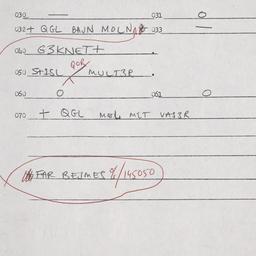 030 — 031 O
032 + QGL BAJN MOLN 033 —
040 G3KNET+ .
050 SHISL QOR MULT3R .
060 O 061 O
070 + QGL MEL MIT VA33R
FAR REJMES %/145050